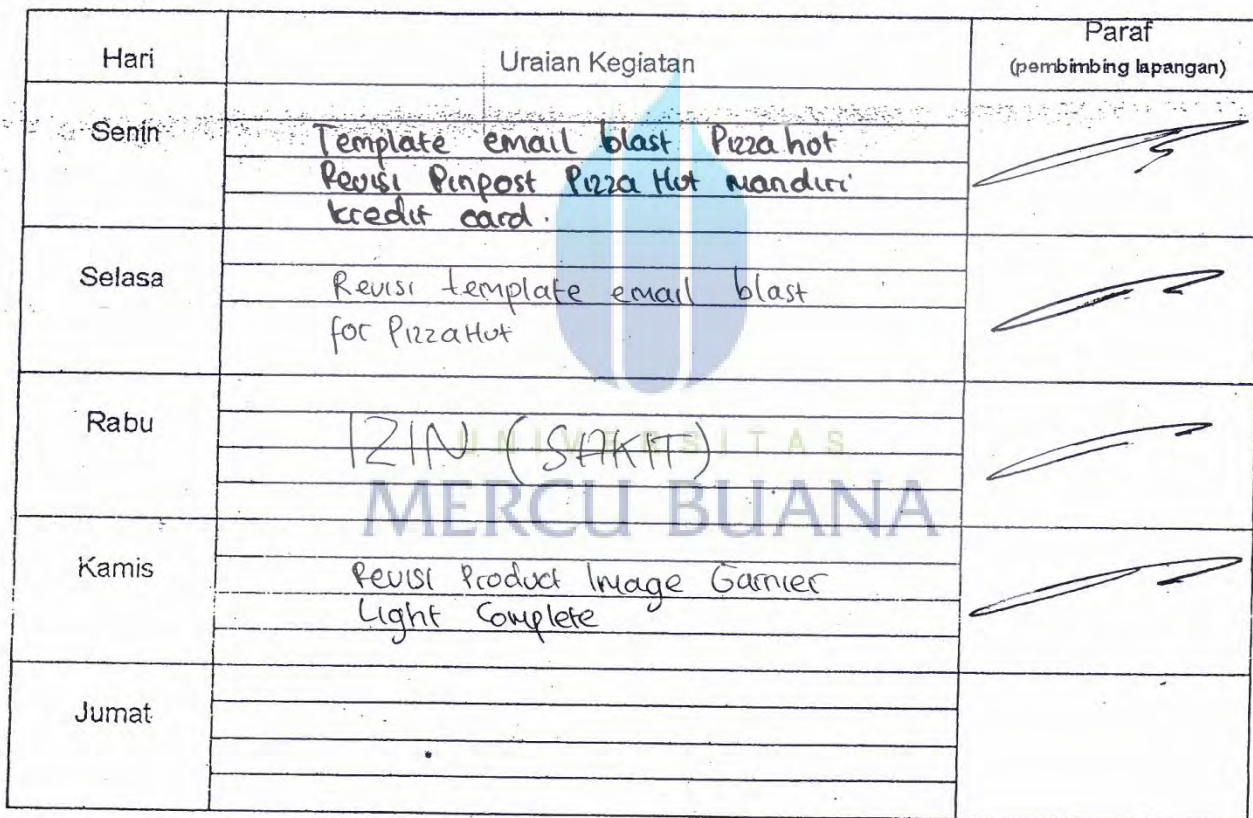 Hari
Uraian Kegiatan
Paraf
(pembimbing lapangan)
Senin
Template email blast Pizza hot
Revisi Pinpost Pizza Hut Mandiri
kredit card.
Selasa
Revisi template email blast
for PizzaHut
Rabu
IZIN (SAKIT)
UNIVERSITAS
MERCU BUANA
Kamis
Revisi Product Image Garnier
Light Complete
Jumat